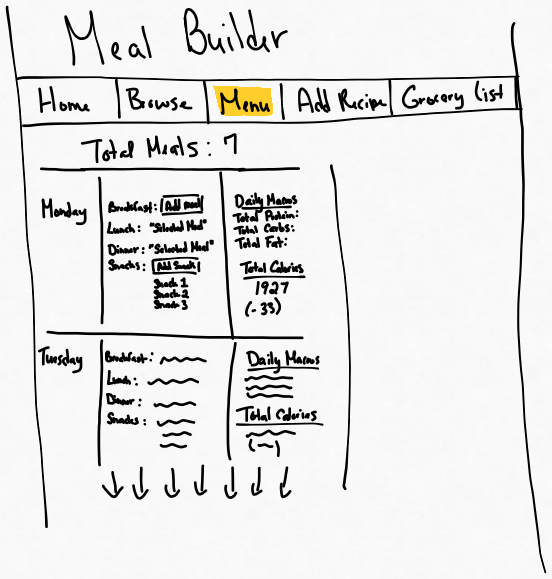 Meal Builder
Home Browse Menu Add Recipe Grocery List
Total Meals: 7
Monday
Breakfast: Add meal
Lunch: "Selected Meal"
Dinner: "Selected Meal"
Snacks: Add Snack
Snack 1
Snack 2
Snack 3
Daily Macros
Total Protein:
Total Carbs:
Total Fat:
Total Calories
1927
(-33)
Tuesday
Breakfast:
Lunch:
Dinner:
Snacks:
Daily Macros
Total Calories